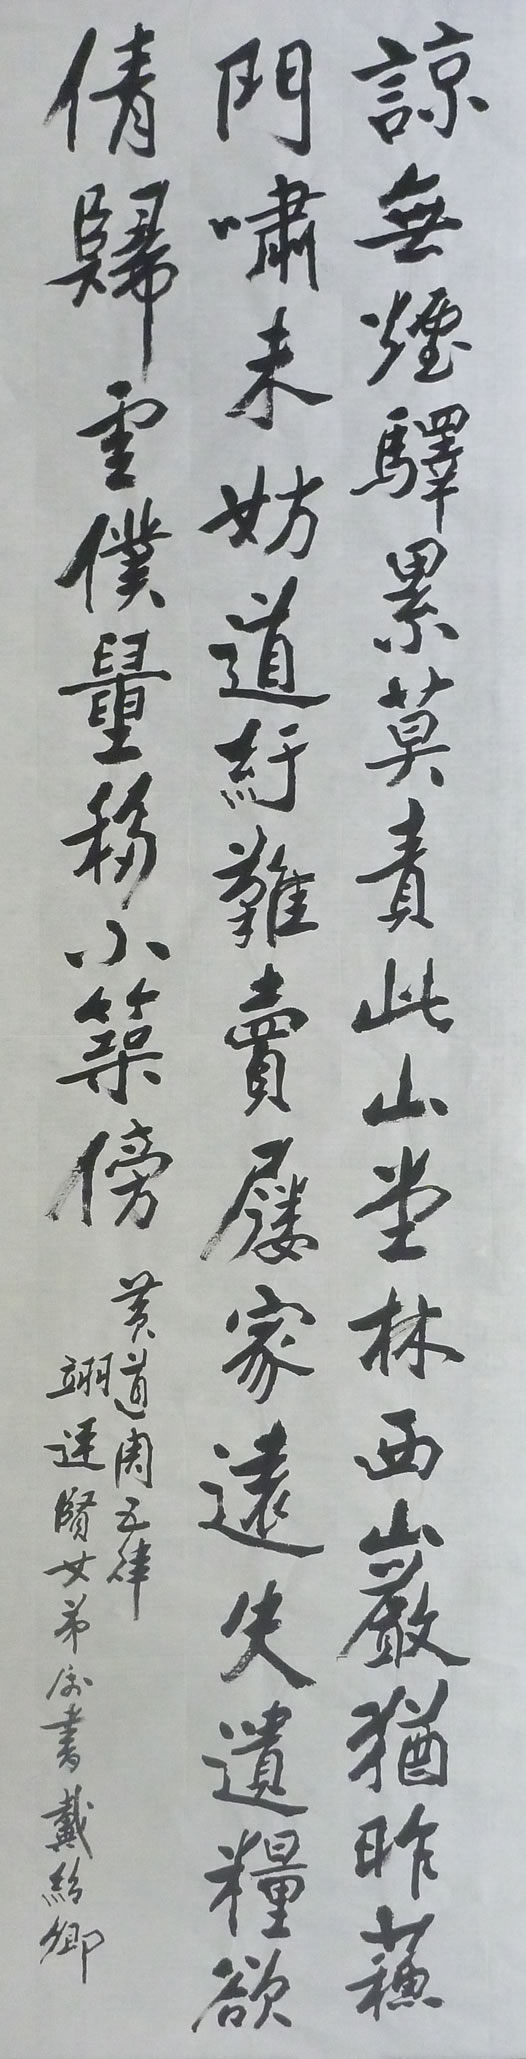 諒無煙驛累莫責此山堂林西巖猶昨蘓
門嘯未妨道紆難賣屨家遠失遺糧欲
倩歸雲僕量移小築傍
黃道周五律
翊賢女弟屬書戴紹卿